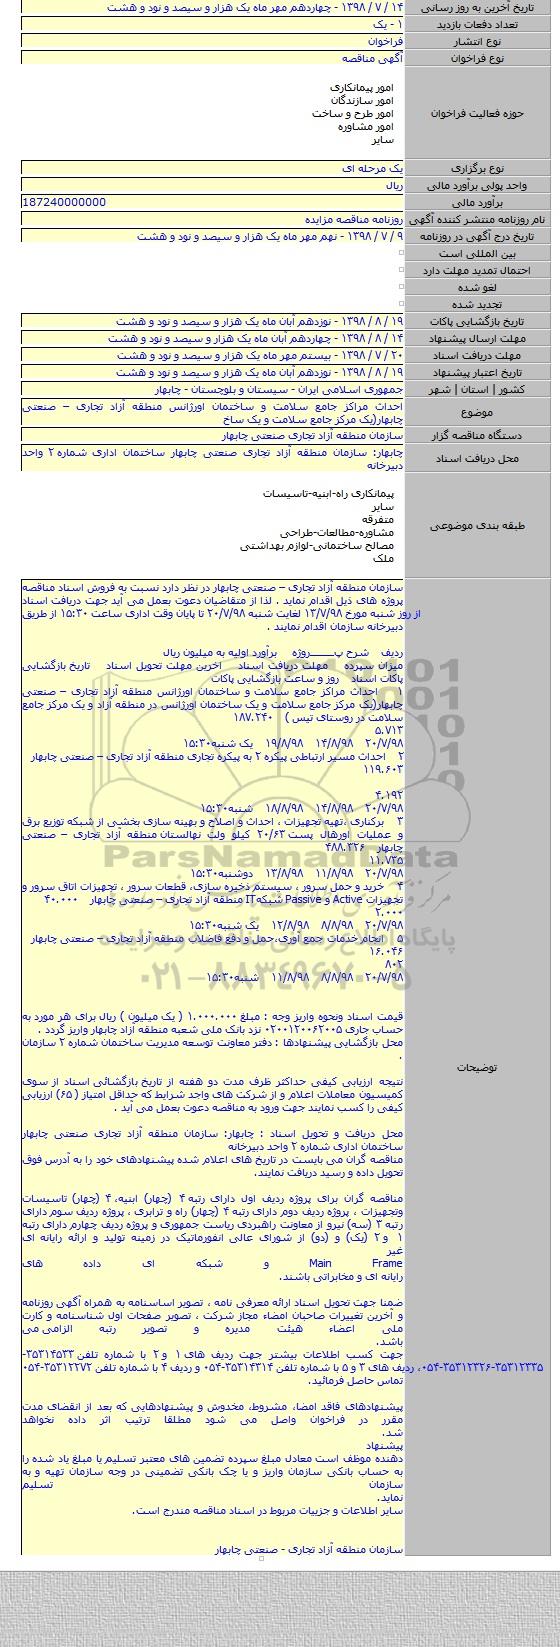 تاریخ آخرین به روز رسانی ۱۴ / ۷ / ۱۳۹۸ - چهاردهم مهر ماه یک هزار و سیصد و نود و هشت
تعداد دفعات بازدید ۱ - یک
نوع انتشار فراخوان
نوع فراخوان آگهی مناقصه
حوزه فعالیت فراخوان
امور پیمانکاری
امور سازندگان
امور طرح و ساخت
امور مشاوره
سایر
نوع برگزاری یک مرحله ای
واحد پولی برآورد مالی ریال
برآورد مالی 187240000000
نام روزنامه منتشر کننده آگهی روزنامه مناقصه مزایده
تاریخ درج آگهی در روزنامه ۹ / ۷ / ۱۳۹۸ - نهم مهر ماه یک هزار و سیصد و نود و هشت
بین المللی است
احتمال تمدید مهلت دارد
لغو شده
تجدید شده
تاریخ بازگشایی پاکات ۱۹ / ۸ / ۱۳۹۸ - نوزدهم آبان ماه یک هزار و سیصد و نود و هشت
مهلت ارسال پیشنهاد ۱۴ / ۸ / ۱۳۹۸ - چهاردهم آبان ماه یک هزار و سیصد و نود و هشت
مهلت دریافت اسناد ۲۰ / ۷ / ۱۳۹۸ - بیستم مهر ماه یک هزار و سیصد و نود و هشت
تاریخ اعتبار پیشنهاد ۱۹ / ۸ / ۱۳۹۸ - نوزدهم آبان ماه یک هزار و سیصد و نود و هشت
کشور | استان | شهر جمهوری اسلامی ایران - سیستان و بلوچستان - چابهار
موضوع احداث مراکز جامع سلامت و ساختمان اورژانس منطقه آزاد تجاری – صنعتی
چابهار(یک مرکز جامع سلامت و یک ساخ
دستگاه مناقصه گزار سازمان منطقه آزاد تجاری صنعتی چابهار
محل دریافت اسناد چابهار: سازمان منطقه آزاد تجاری صنعتی چابهار ساختمان اداری شماره ۲ واحد
دبیرخانه
طبقه بندی موضوعی
پیمانکاری راه-ابنیه-تاسیسات
سایر
متفرقه
مشاوره-مطالعات-طراحی
مصالح ساختمانی-لوازم بهداشتی
ملک
توضیحات
سازمان منطقه آزاد تجاری – صنعتی چابهار در نظر دارد نسبت به فروش اسناد مناقصه
پروژه های ذیل اقدام نماید . لذا از متقاضیان دعوت بعمل می آید جهت دریافت اسناد
از روز شنبه مورخ ۱۳/۷/۹۸ لغایت شنبه ۲۰/۷/۹۸ تا پایان وقت اداری ساعت ۱۵:۳۰ از طریق
دبیرخانه سازمان اقدام نمایند .
ردیف شرح پـــــــروژه برآورد اولیه به میلیون ریال
میزان سپرده مهلت دریافت اسناد آخرین مهلت تحویل اسناد تاریخ بازگشایی
پاکات اسناد روز و ساعت بازگشایی پاکات
۱ احداث مراکز جامع سلامت و ساختمان اورژانس منطقه آزاد تجاری – صنعتی
چابهار(یک مرکز جامع سلامت و یک ساختمان اورژانس در منطقه آزاد و یک مرکز جامع
سلامت در روستای تیس ) ۱۸۷.۲۴۰
۵.۷۱۳
۲۰/۷/۹۸ ۱۴/۸/۹۸ ۱۹/۸/۹۸ یک شنبه۱۵:۳۰
۲ احداث مسیر ارتباطی پیکره ۲ به پیکره تجاری منطقه آزاد تجاری – صنعتی چابهار
۱۱۹.۶۰۳
۴.۱۹۲
۲۰/۷/۹۸ ۱۴/۸/۹۸ ۱۸/۸/۹۸ شنبه۱۵:۳۰
۳ برکناری ،تهیه تجهیزات ، احداث و اصلاح و بهینه سازی بخشی از شبکه توزیع برق
و عملیات اورهال پست ۲۰/۶۳ کیلو ولت نهالستان منطقه آزاد تجاری – صنعتی
چابهار ۴۸۸.۳۲۶
۱۱.۷۳۵
۲۰/۷/۹۸ ۱۱/۸/۹۸ ۱۳/۸/۹۸ دوشنبه۱۵:۳۰
۴ خرید و حمل سرور ، سیستم ذخیره سازی، قطعات سرور ، تجهیزات اتاق سرور و
تجهیزات Active و Passive شبکهIT منطقه آزاد تجاری – صنعتی چابهار ۴۰.۰۰۰
۲.۰۰۰
۲۰/۷/۹۸ ۸/۸/۹۸ ۱۲/۸/۹۸ یک شنبه۱۵:۳۰
۵ انجام خدمات جمع آوری،حمل و دفع فاضلاب منطقه آزاد تجاری – صنعتی چابهار
۱۶.۰۴۶
۸۰۲
۲۰/۷/۹۸ ۸/۸/۹۸ ۱۱/۸/۹۸ شنبه۱۵:۳۰
قیمت اسناد ونحوه واریز وجه : مبلغ ۱.۰۰۰.۰۰۰ ( یک میلیون ) ریال برای هر مورد به
حساب جاری ۰۲۰۰۱۲۰۰۶۲۰۰۵ نزد بانک ملی شعبه منطقه آزاد چابهار واریز گردد .
محل بازگشایی پیشنهادها : دفتر معاونت توسعه مدیریت ساختمان شماره ۲ سازمان
.
نتیجه ارزیابی کیفی حداکثر ظرف مدت دو هفته از تاریخ بازگشائی اسناد از سوی
کمیسیون معاملات اعلام و از شرکت های واجد شرایط که حداقل امتیاز ( ۶۵) ارزیابی
کیفی را کسب نمایند جهت ورود به مناقصه دعوت بعمل می آید .
محل دریافت و تحویل اسناد : چابهار: سازمان منطقه آزاد تجاری صنعتی چابهار
ساختمان اداری شماره ۲ واحد دبیرخانه
مناقصه گران می بایست در تاریخ های اعلام شده پیشنهادهای خود را به آدرس فوق
تحویل داده و رسید دریافت نمایند.
مناقصه گران برای پروژه ردیف اول دارای رتبه ۴ (چهار) ابنیه، ۴ (چهار) تاسیسات
وتجهیزات ، پروژه ردیف دوم دارای رتبه ۴ (چهار) راه و ترابری ، پروژه ردیف سوم دارای
رتبه ۳ (سه) نیرو از معاونت راهبردی ریاست جمهوری و پروژه ردیف چهارم دارای رتبه
۱ و ۲ (یک) و (دو) از شورای عالی انفورماتیک در زمینه تولید و ارائه رایانه ای
غیر
Main Frame و شبکه ای داده های
رایانه ای و مخابراتی باشند.
ضمنا جهت تحویل اسناد ارائه معرفی نامه ، تصویر اساسنامه به همراه آگهی روزنامه
و آخرین تغییرات صاحبان امضاء مجاز شرکت ، تصویر صفحات اول شناسنامه و کارت
ملی اعضاء هیئت مدیره و تصویر رتبه الزامی می
باشد.
جهت کسب اطلاعات بیشتر جهت ردیف های ۱ و ۲ با شماره تلفن ۳۵۳۱۴۵۳۳-
۰۵۴-۳۵۳۱۲۳۲۶-۳۵۳۱۲۳۳۵، ردیف های ۳ و ۵ با شماره تلفن ۳۵۳۱۴۳۱۴-۰۵۴ و ردیف ۴ با شماره تلفن ۳۵۳۱۲۲۷۲-۰۵۴
تماس حاصل فرمائید.
پیشنهادهای فاقد امضا، مشروط، مخدوش و پیشنهادهایی که بعد از انقضای مدت
مقرر در فراخوان واصل می شود مطلقا ترتیب اثر داده نخواهد
شد.
پیشنهاد
دهنده موظف است معادل مبلغ سپرده تضمین های معتبر تسلیم یا مبلغ یاد شده را
به حساب بانکی سازمان واریز و یا چک بانکی تضمینی در وجه سازمان تهیه و به
سازمان تسلیم
نماید.
سایر اطلاعات و جزییات مربوط در اسناد مناقصه مندرج است.
سازمان منطقه آزاد تجاری - صنعتی چابهار
ParsNamadData
۰۲۱-۸۸۳۴۹۶۷۰-۵